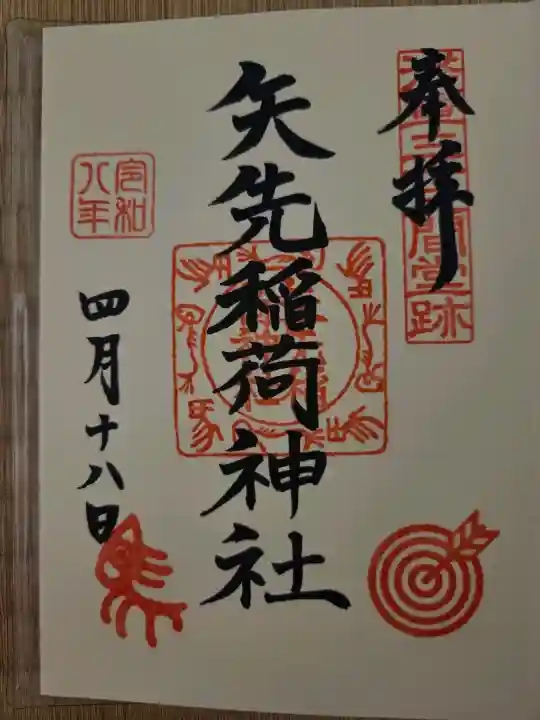 奉拝
浅草三十三間堂跡
矢先稲荷神社
令和
八年
四月十八日